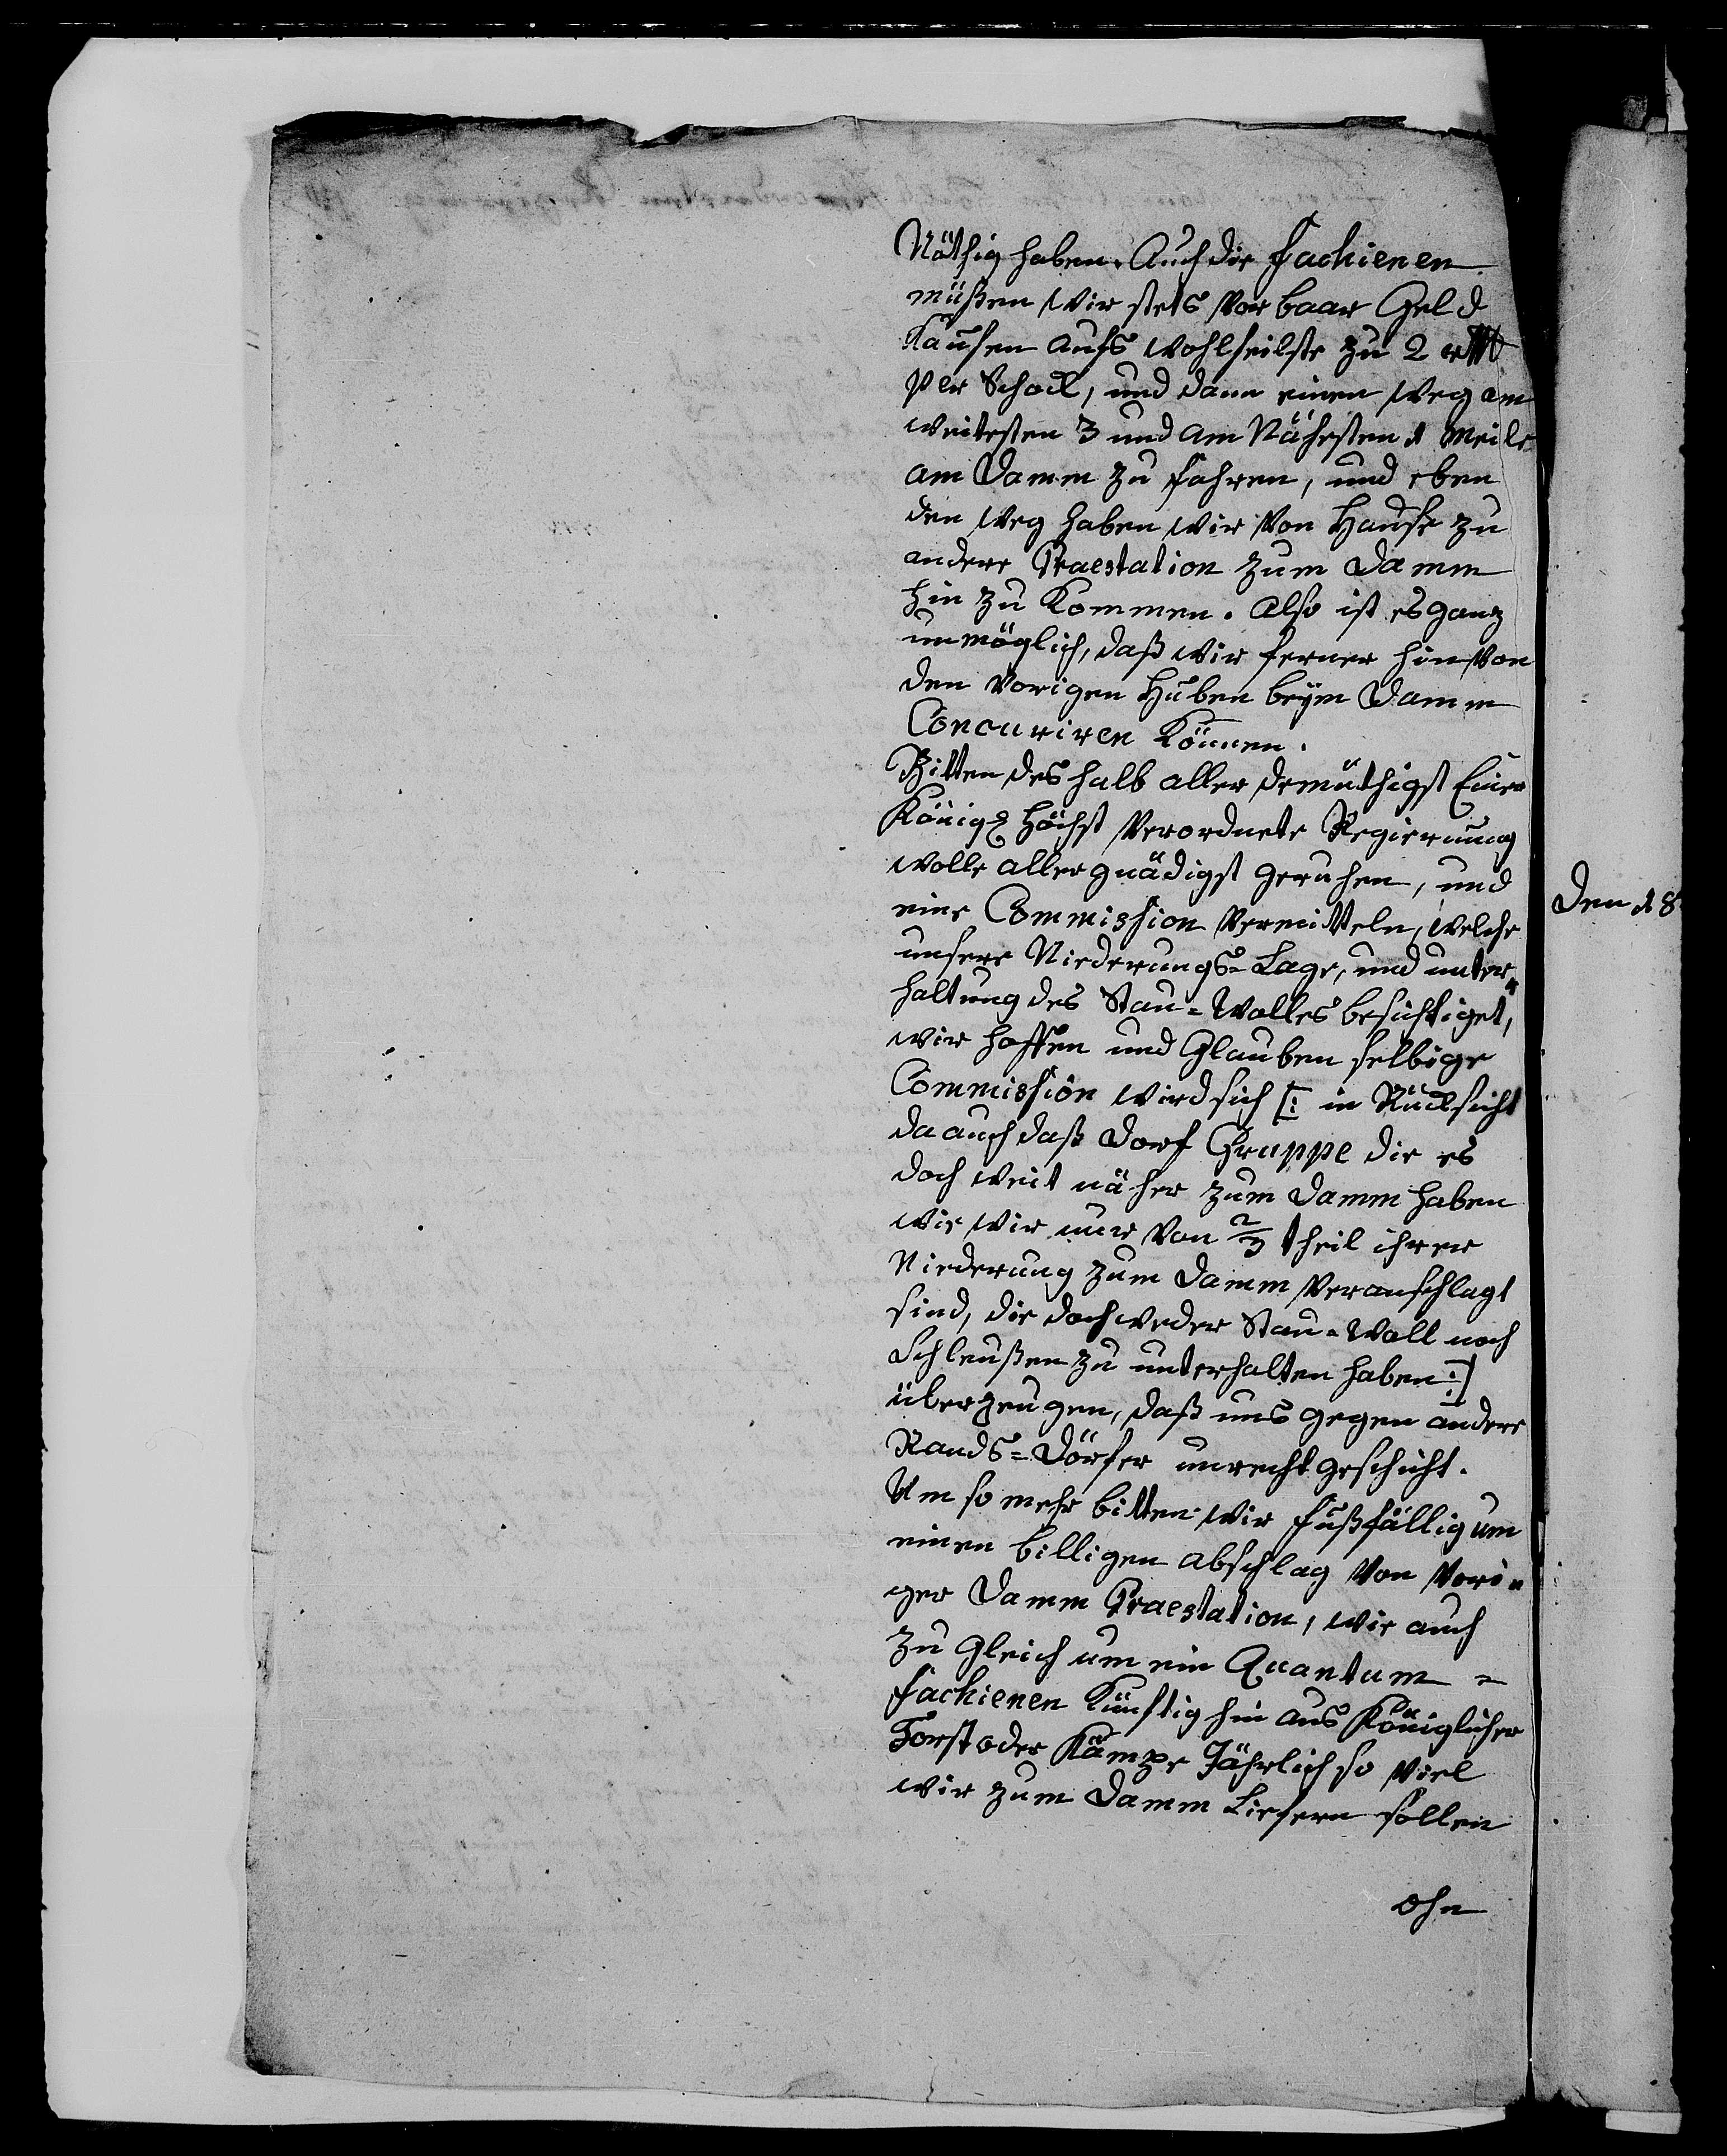 Nöthig haben. Auch die Fachienen
müßen wir stets vor baar Geld
Kaufen aufs wohlfeilste zu 2 rthl
per Schock, und dann einen Weg am
weitesten 3 und am Nähesten 1 Meile
am Damm zu fahren, und eben
den Weg haben wir von Hause zu
andere Praestation zum Damm
hin zu Kommen. Also ist es ganz
unmöglich, daß wir ferner hin von
den vorigen Huben beÿm Damm
Concuriren Können.
Bitten des halb aller demüthigst Einer
Königl Höchst verordnete Regierung
wolle allergnädigst geruhen, und
eine Commission vermitteln, welche
unsere Niederungs-Lage, und unter-
haltung des Stau-Walles besichtiget,
wir hoffen und Glauben selbige
Commission wird sich [: in Rücksicht
da auch daß Dorf Gruppe die es
doch weit näher zum Damm haben
wie wir nur von 2/3 theil ihrer
Niederung zum Damm veranschlagt
sind, die doch weder Stau-Wall noch
Schleußen zu unterhalten haben :]
überzeugen, daß uns gegen andere
Rands-Dörfer unrecht geschicht.
Um so mehr bitten wir fußfällig um
einen billigen abschlag von vori-
ger Damm Praestation, wie auch
zu gleich um ein Quantum -
Fachienen Künftig hin aus Königlicher
Forst oder Kämpe Jährlich so viel
wir zum Damm Liefern sollen
ohn
Den 18